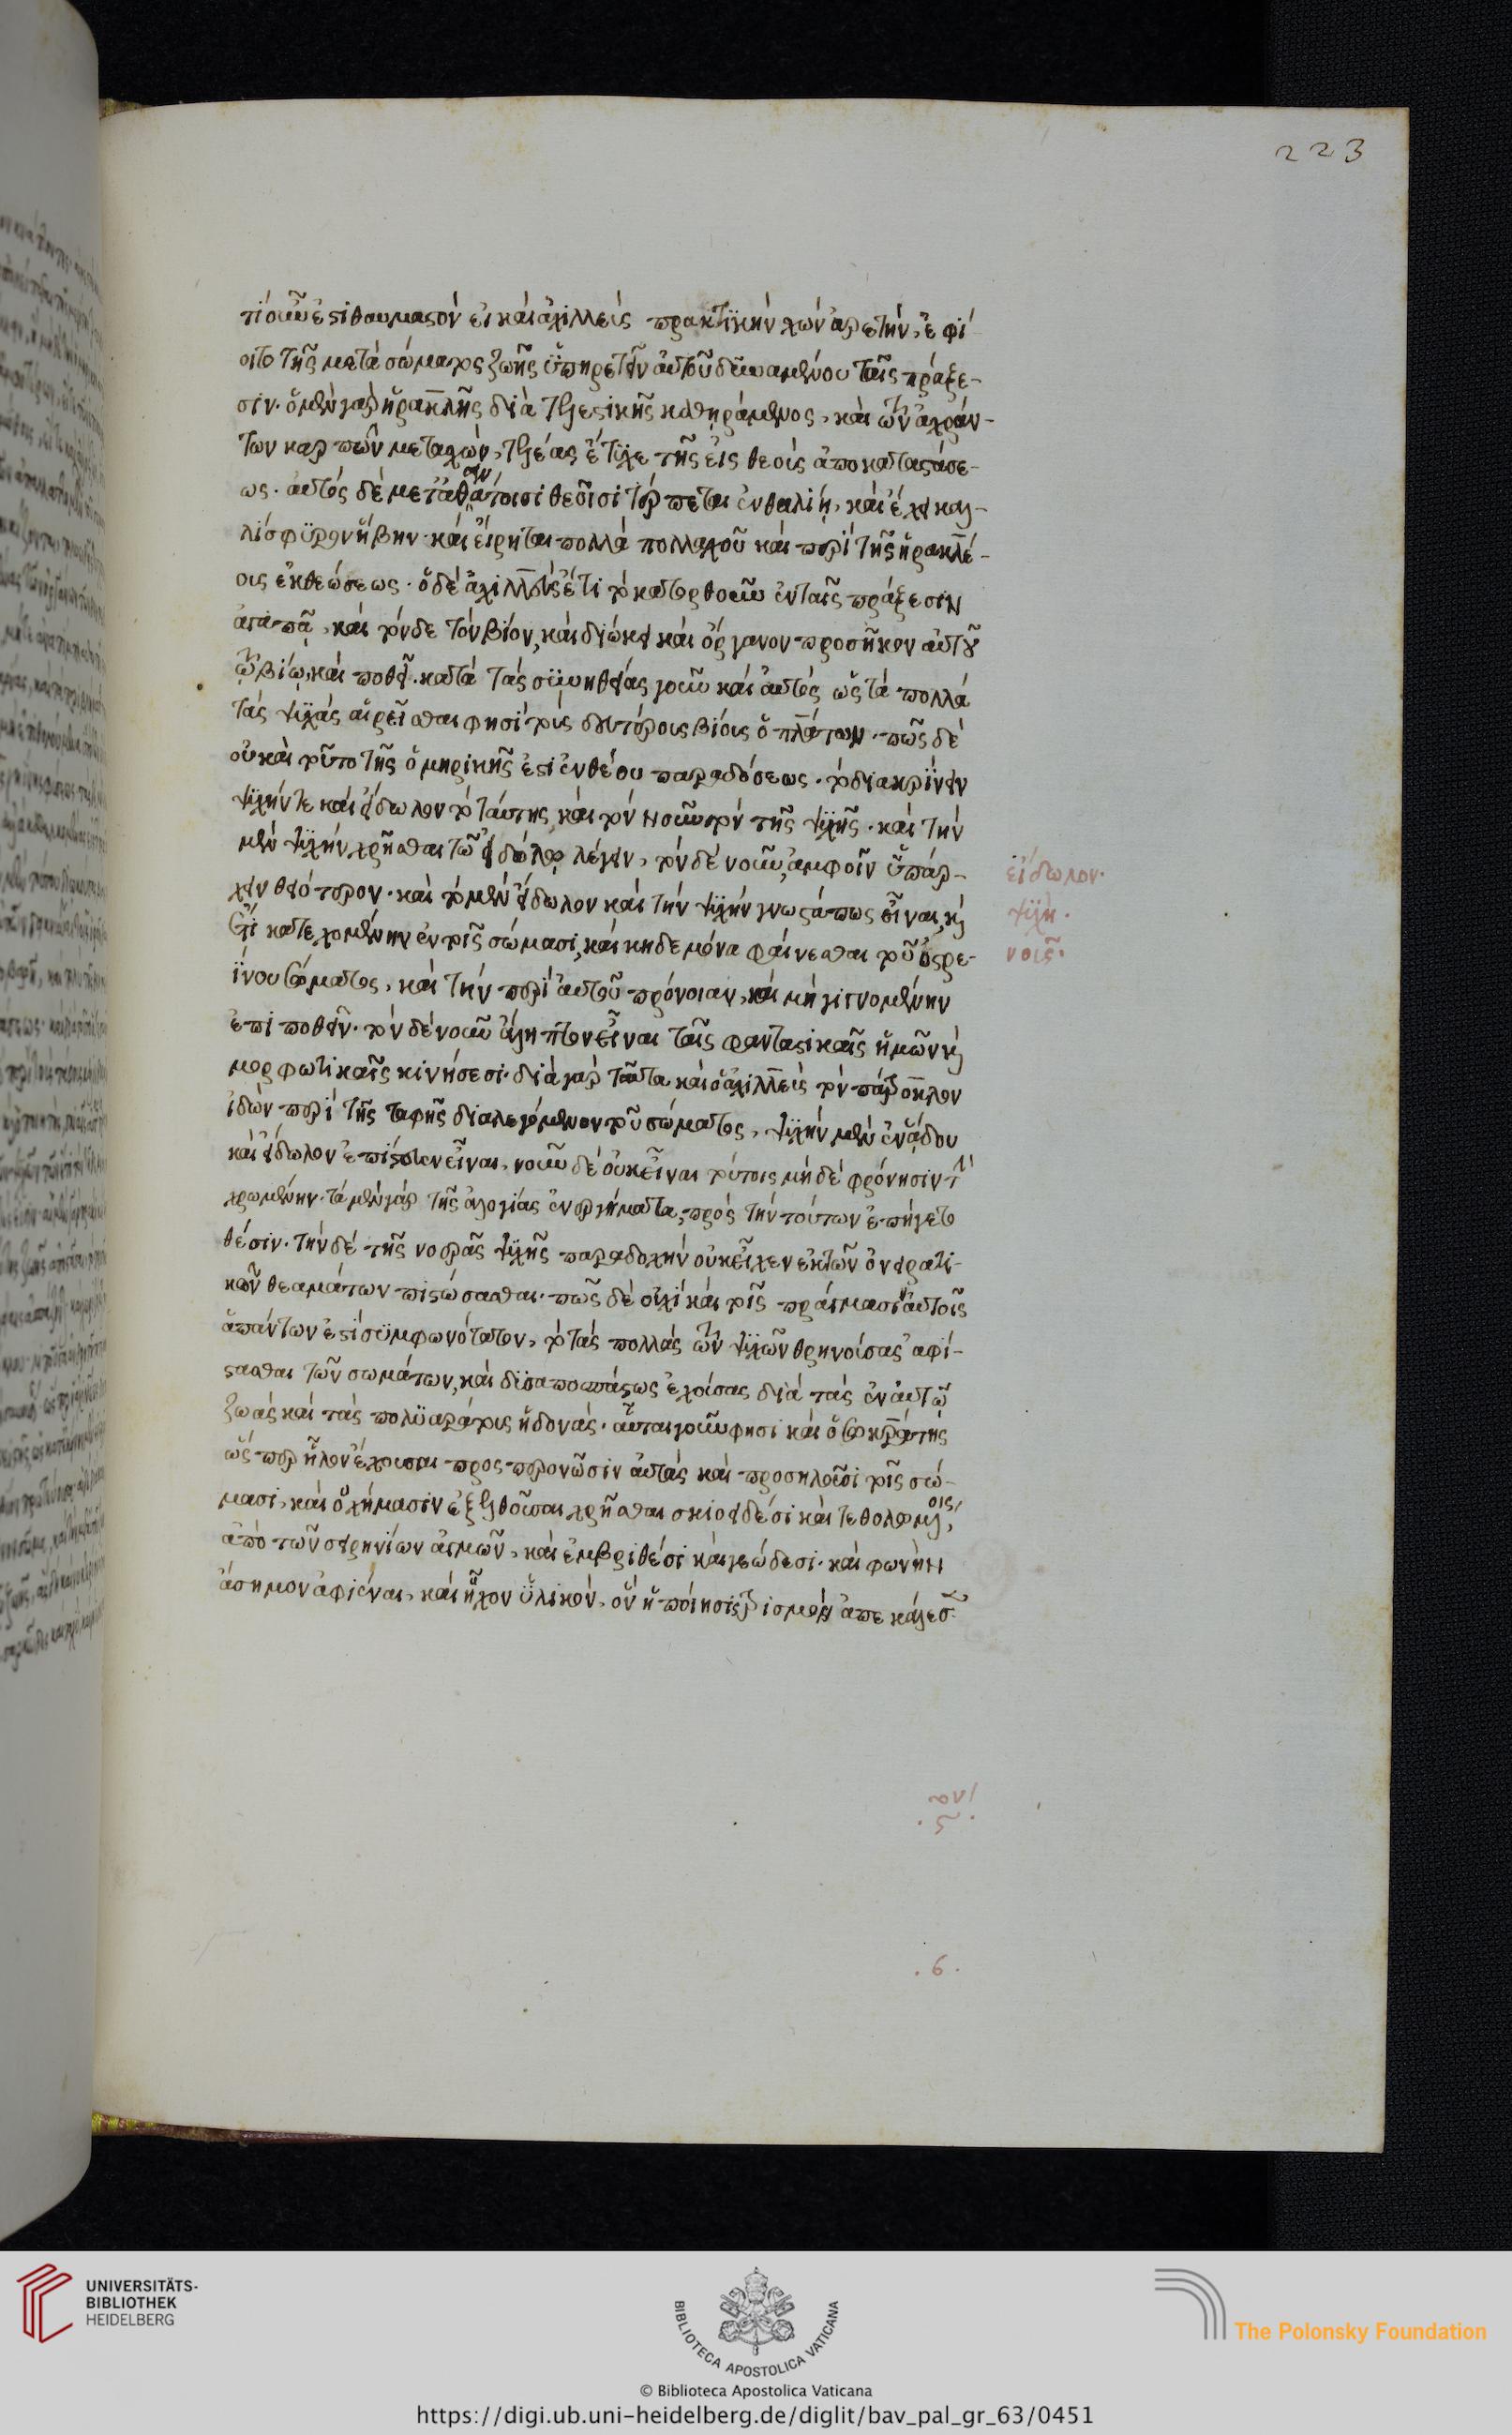 223
τί οὖν ἐστι θαυμαστὸν εἰ καὶ ἀχιλλεὺς πρακτικὴν ἔχων ἀρετὴν, ἐφί-
οιτο τῆς μετὰ σώματος ζωῆς ὑπηρετεῖν αὐτοῦ δυναμένου ταῖς πράξε-
σιν. ὁ μὲν γὰρ ἡρακλῆς διὰ τελεστικῆς καθηράμενος, καὶ τῶν ἀχράν-
των καρπῶν μετασχὼν, τελέας ἔτυχε τῆς εἰς θεοὺς ἀποκαταστάσε-
ως. αὐτὸς δὲ μετ' ἀθανάτοισι θεοῖσι τέρπεται ἐν θαλίῃ, καὶ ἔχει καλ-
λίσφυρον ἥβην. καὶ εἴρηται πολλὰ πολλαχοῦ καὶ περὶ τῆς ἡρακλέ-
ους ἐκθεώσεως. ὁ δὲ ἀχιλλεὺς ἔτι τὸ κατορθοῦν ἐν ταῖς πράξεσιν
ἀγαπᾷ, καὶ τόνδε τὸν βίον, καὶ διώκει καὶ ὄργανον προσῆκον αὐτοῦ
τῷ βίῳ, καὶ ποθεῖ. κατὰ τὰς συνηθείας γοῦν καὶ αὐτὸς ὡς τὰ πολλὰ
τὰς ψυχὰς αἱρεῖσθαι φησὶ τοὺς δευτέρους βίους ὁ πλάτων. πῶς δὲ
οὐ καὶ τοῦτο τῆς ὁμηρικῆς ἐστι ἐνθέου παραδόσεως. τὸ διακρίνειν
ψυχήν τε καὶ εἴδωλον τὸ ταύτης, καὶ τὸν νοῦν τὸν τῆς ψυχῆς. καὶ τὴν
μὲν ψυχὴν χρῆσθαι τῷ εἰδώλῳ λέγειν, τὸν δὲ νοῦν, ἀμφοῖν ὑπάρ-
χειν θειότερον. καὶ τὸ μὲν εἴδωλον καὶ τὴν ψυχὴν γνωστά πως εἶναι, καὶ
ἔτι κατεχομένην ἐν τοῖς σώμασι, καὶ κηδεμόνα φαίνεσθαι τοῦ ὀστρε-
ΐνου σώματος, καὶ τὴν περὶ αὐτοῦ πρόνοιαν, καὶ μὴ γιγνομένην
ἐπιποθεῖν. τὸν δὲ νοῦν ἄληπτον εἶναι ταῖς φανταστικαῖς ἡμῶν καὶ
μορφωτικαῖς κινήσεσι. διὰ γὰρ ταῦτα καὶ ὁ ἀχιλλεὺς τὸν πάτροκλον
ἰδὼν περὶ τῆς ταφῆς διαλεγόμενον τοῦ σώματος, ψυχὴν μὲν ἐν ᾅδου
καὶ εἴδωλον ἐπίστευεν εἶναι, νοῦν δὲ οὐκ εἶναι τούτοις μηδὲ φρόνησιν τὴν
χρωμένην. τὰ μὲν γὰρ τῆς ἀλογίας ἐνεργήματα, πρὸς τὴν τούτων ἐπήγετο
θέσιν. τὴν δὲ τῆς νοερᾶς ψυχῆς παραδοχὴν οὐκ εἶχεν ἐκ τῶν ὀνειρατι-
κῶν θεαμάτων πιστώσασθαι. πῶς δὲ οὐχὶ καὶ τοῖς πράγμασιν αὐτοῖς
ἁπάντων ἐστὶ συμφωνότατον, τὸ τὰς πολλὰς τῶν ψυχῶν θρηνούσας ἀφί-
στασθαι τῶν σωμάτων, καὶ δυσαποσπάστως ἐχούσας διὰ τὰς ἐν αὐτῷ
ζωὰς καὶ τὰς πολυαράτους ἡδονάς. αὗται γοῦν φησι καὶ ὁ σωκράτης
ὥσπερ ἧλον ἔχουσαι προσπερονῶσιν αὐτὰς καὶ προσηλοῦσι τοῖς σώ-
μασι, καὶ ὀχήμασιν ἐξελθοῦσαι χρῆσθαι σκιοειδέσι καὶ τεθολωμένοις,
ἀπὸ τῶν σειρηνίων ἀτμῶν, καὶ ἐμβριθέσι καὶ γεώδεσι. καὶ φωνὴν
ἄσημον ἀφιέναι, καὶ ἦχον ὑλικὸν, ὃν ἡ ποίησις τρισμὸν ἀπεκάλεσε.
εἴδωλον.
ψυχή.
νοῦς.
.6.
UNIVERSITÄTS-
BIBLIOTHEK
HEIDELBERG
BIBLIOTECA APOSTOLICA VATICANA
The Polonsky Foundation
© Biblioteca Apostolica Vaticana
https://digi.ub.uni-heidelberg.de/diglit/bav_pal_gr_63/0451